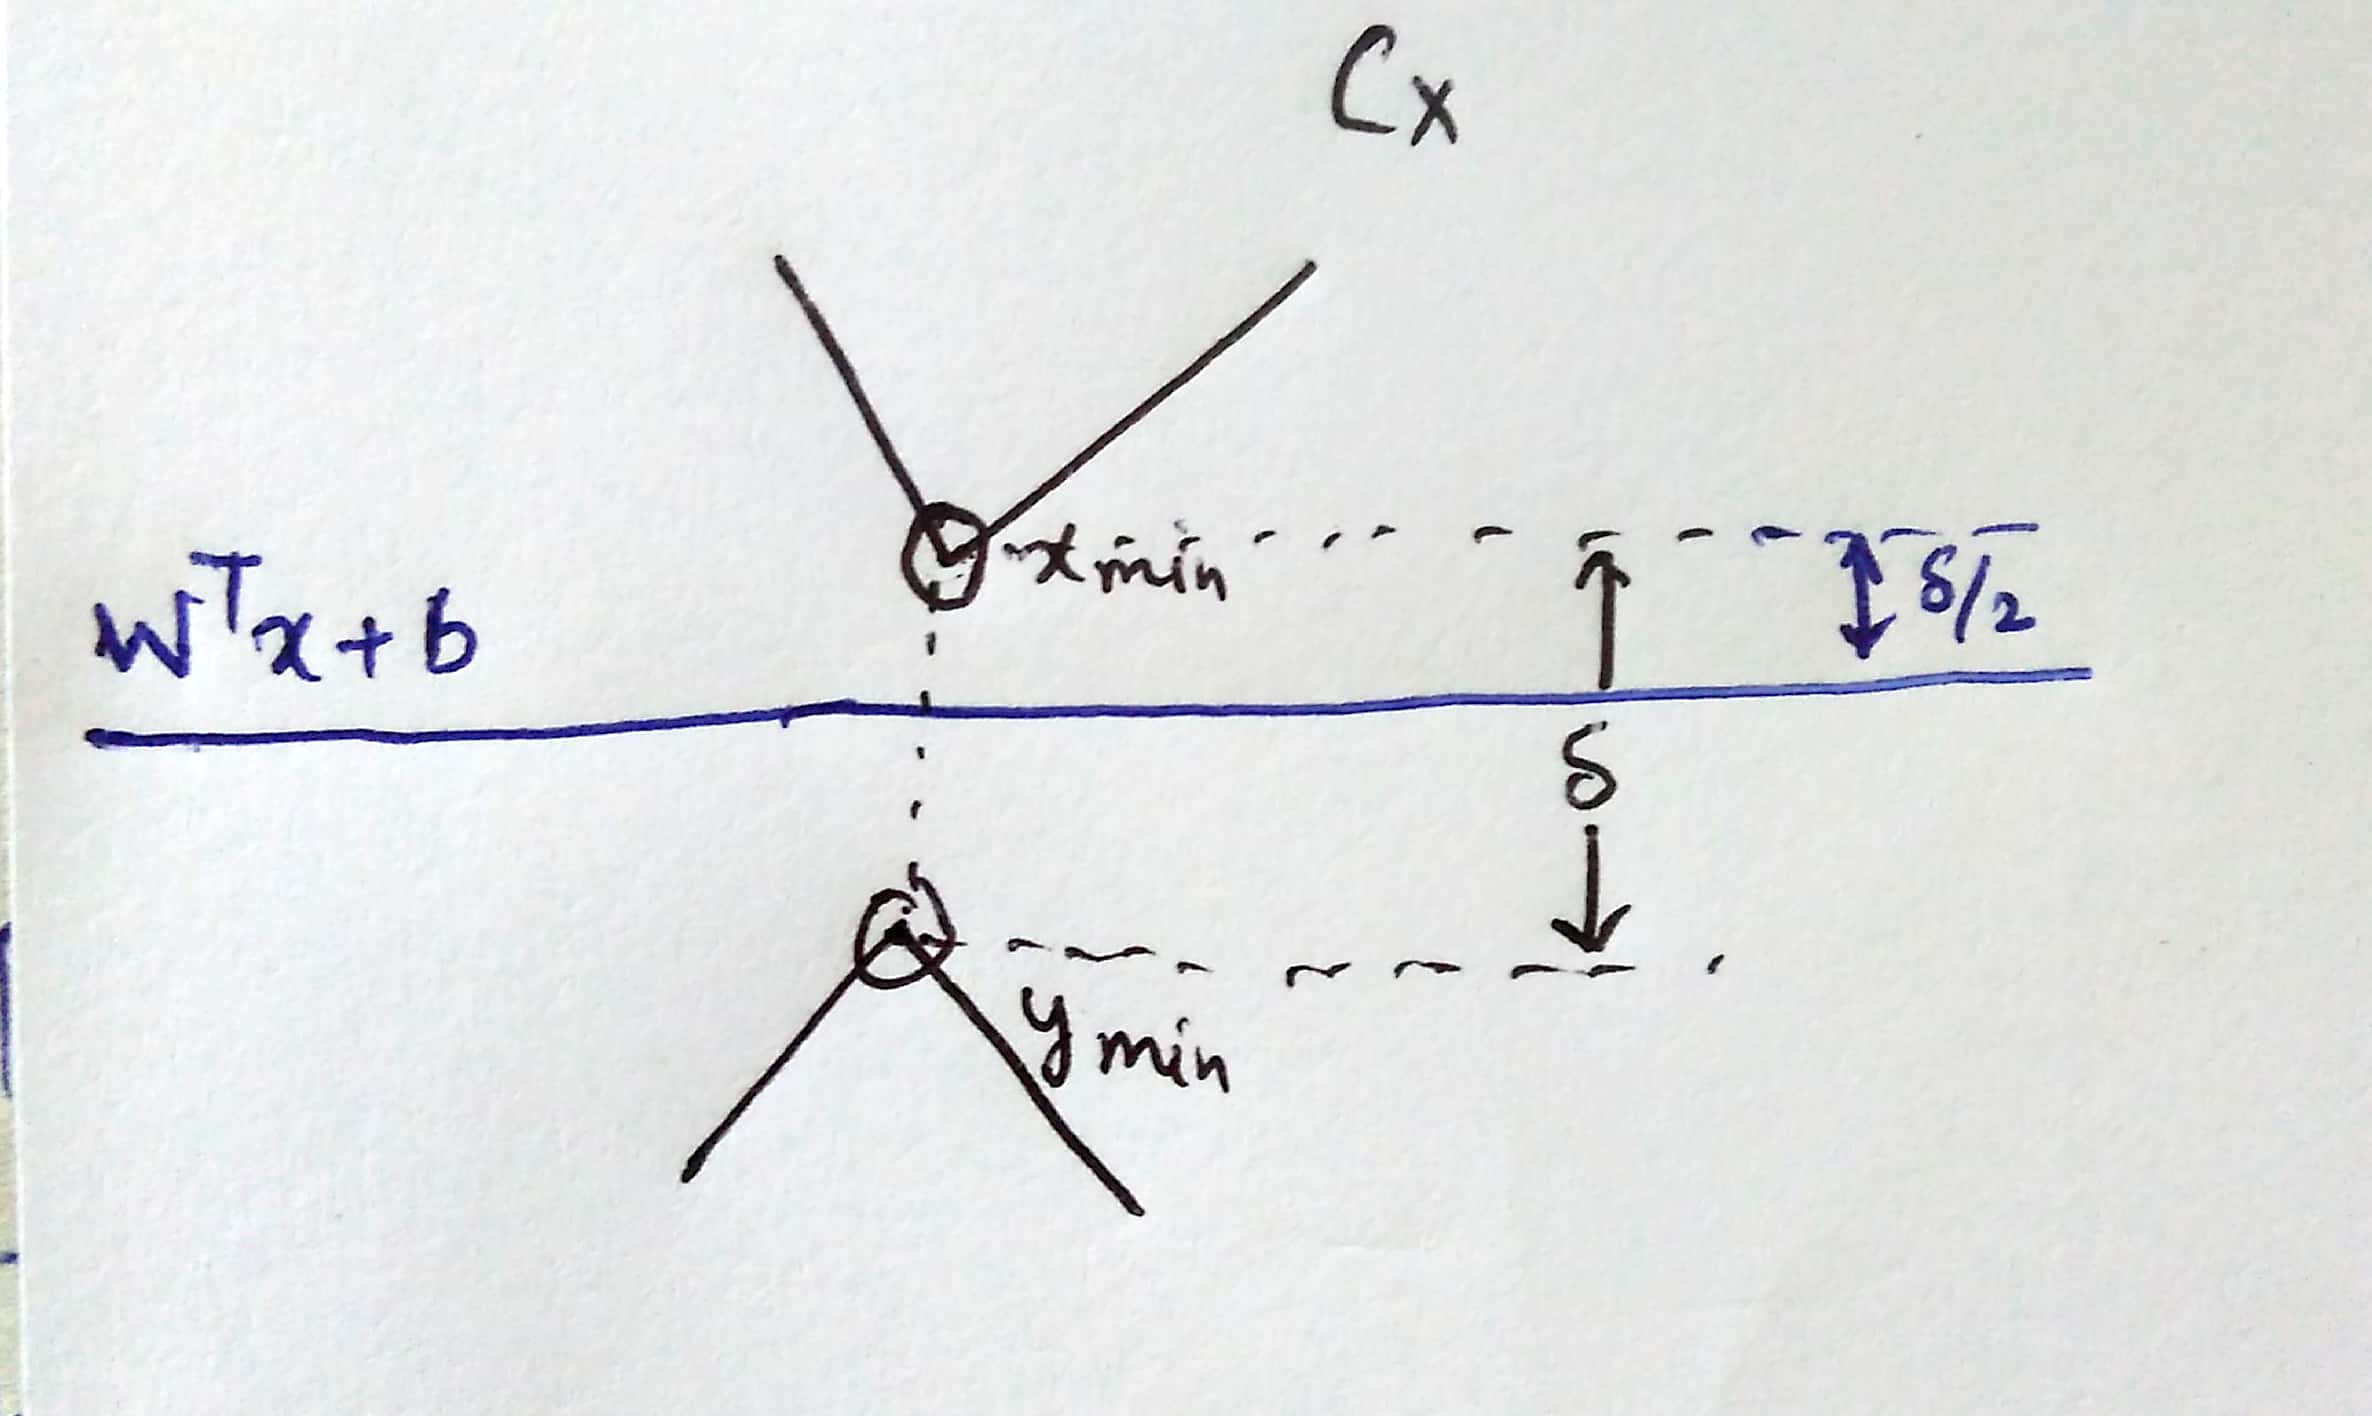 Cx
xmin
δ/2
Wᵀx+b
δ
ymin